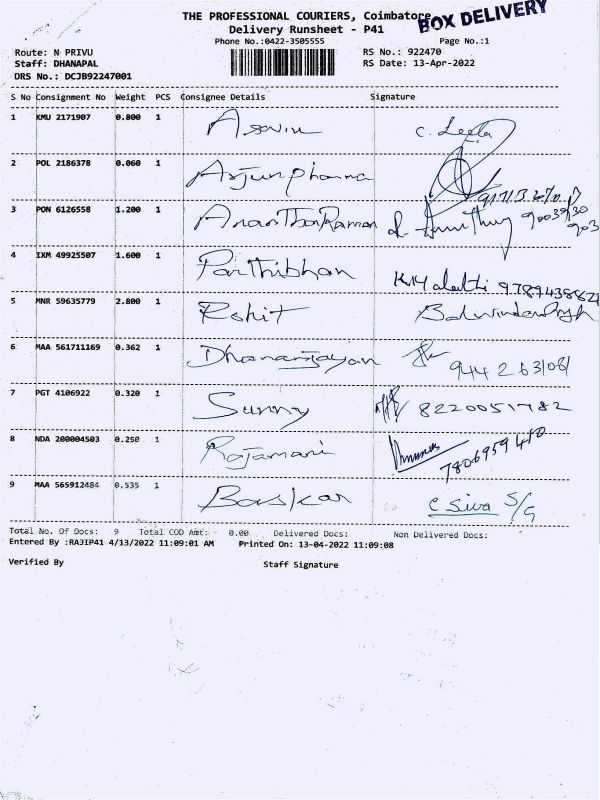 THE PROFESSIONAL COURIERS, Coimbatore
BOX DELIVERY
Delivery Runsheet - P41
Phone No.:0422-3505555 Page No.:1
Route: N PRIVU RS No.: 922470
Staff: DHANAPAL RS Date: 13-Apr-2022
DRS No.: DCJB92247001
S No Consignment No Weight PCS Consignee Details Signature
1 KMU 2171907 0.800 1 C. Leela
2 POL 2186378 0.060 1
3 PON 6126558 1.200 1
4 IXM 49925507 1.600 1 Parthibhan
5 MNR 59635779 2.800 1 Rohit
6 MAA 561711169 0.362 1 Dhananjayan
7 PGT 4106922 0.320 1 Sunny 8220051782
8 NDA 200004503 0.250 1 Rajamani
9 MAA 565912484 0.535 1 Baskar C Siva S/G
Total No. Of Docs: 9 Total COD Amt: 0.00 Delivered Docs: Non Delivered Docs:
Entered By :RAJIP41 4/13/2022 11:09:01 AM Printed On: 13-04-2022 11:09:08
Verified By Staff Signature